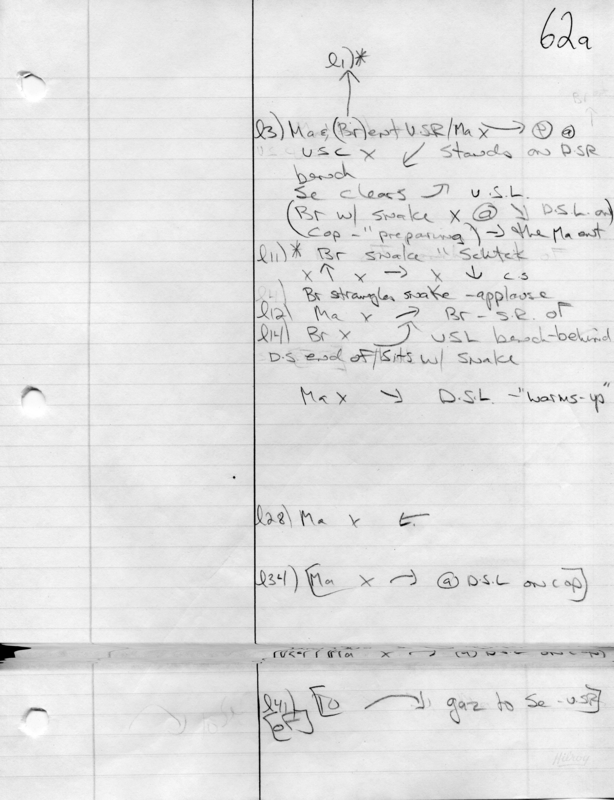 62a
l1)*
l3) Ma & (Br) ent U.S.R/Ma x → Ⓟ @
U.S.C X ↙ stands on D.S.R
bench
Se clears ↗ U.S.L.
(Br w/ snake x @ ↘ D.S.L. on)
(Cop - "preparing") → the Ma ent
l11)* Br snake "Schtek
x ↑ x → x ↓ c.s
Br strangles snake - applause
l12) Ma x ↗ Br - S.R. of
l14) Br x ↗ USL bench-behind
D.S end of/sits w/ snake
Ma x ↘ D.S.L. - "warms-up"
l28) Ma x ←
l34) [Ma x → @ D.S.L on cop]
l41) [To → gaz to Se - USR]